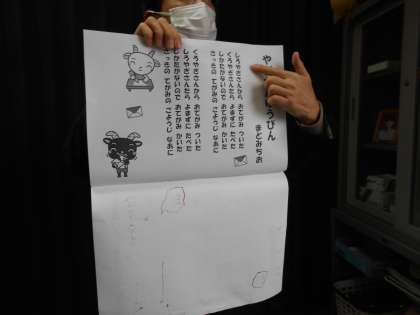 や うびん
まどみちお
しろやぎさんから おてがみ ついた
くろやぎさんたら よまずに たべた
しかたがないので おてがみ かいた
さっきの てがみの ごようじ なあに
くろやぎさんから おてがみ ついた
しろやぎさんたら よまずに たべた
しかたがないので おてがみ かいた
さっきの てがみの ごようじ なあに